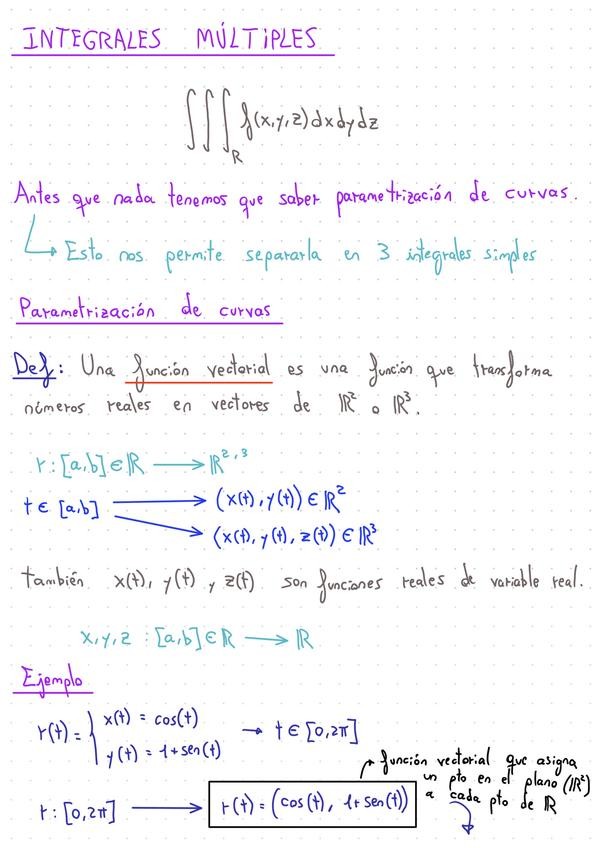 INTEGRALES MÚLTIPLES
∫∫∫_R f(x,y,z)dxdydz
Antes que nada tenemos que saber parametrización de curvas.
↳ Esto nos permite separarla en 3 integrales simples
Parametrización de curvas
Def: Una función vectorial es una función que transforma
números reales en vectores de ℝ² o ℝ³.
r:[a,b]∈ℝ ⟶ ℝ²,³
t∈[a,b] ⟶ (x(t),y(t))∈ℝ²
⟶ (x(t),y(t),z(t))∈ℝ³
también x(t), y(t) y z(t) son funciones reales de variable real.
x,y,z :[a,b]∈ℝ ⟶ ℝ
Ejemplo
r(t)= { x(t) = cos(t)
y(t) = 1+sen(t) → t∈[0,2π]
función vectorial que asigna
un pto en el plano (ℝ²)
a cada pto de ℝ
r:[0,2π] ⟶ r(t)=(cos(t), 1+sen(t))